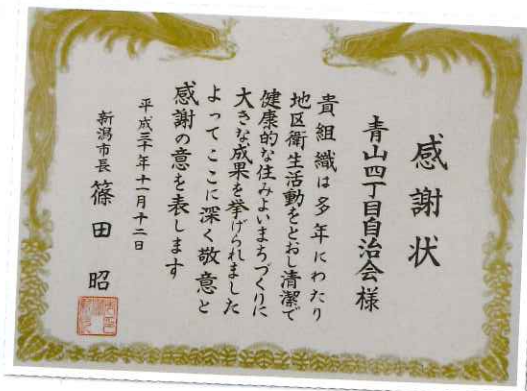 感謝状
青山四丁目自治会様
貴組織は多年にわたり
地区衛生活動をとおし清潔で
健康的な住みよいまちづくりに
大きな成果を挙げられました
よってここに深く敬意と
感謝の意を表します
平成三十年十一月十二日
新潟市長 篠田昭